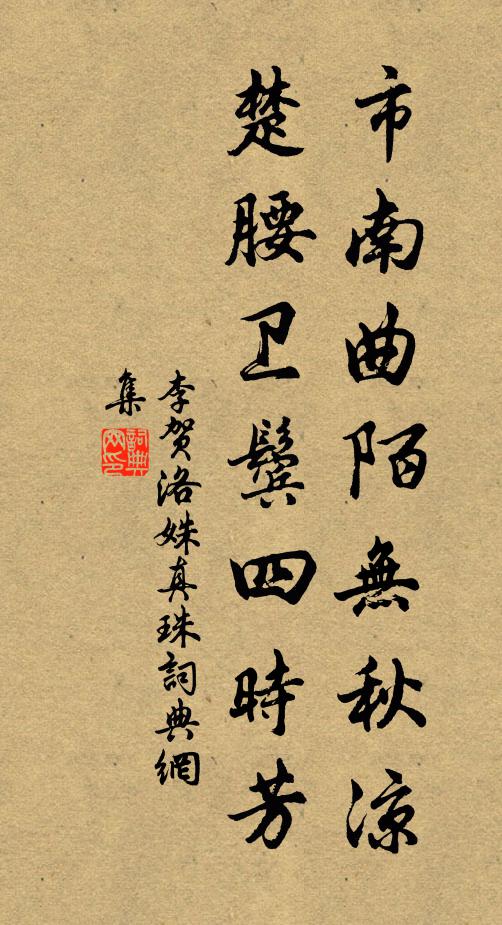 市南曲陌無秋涼
楚腰卫鬓四時芳
李贺洛姝真珠詞典網
集
詞典
网印